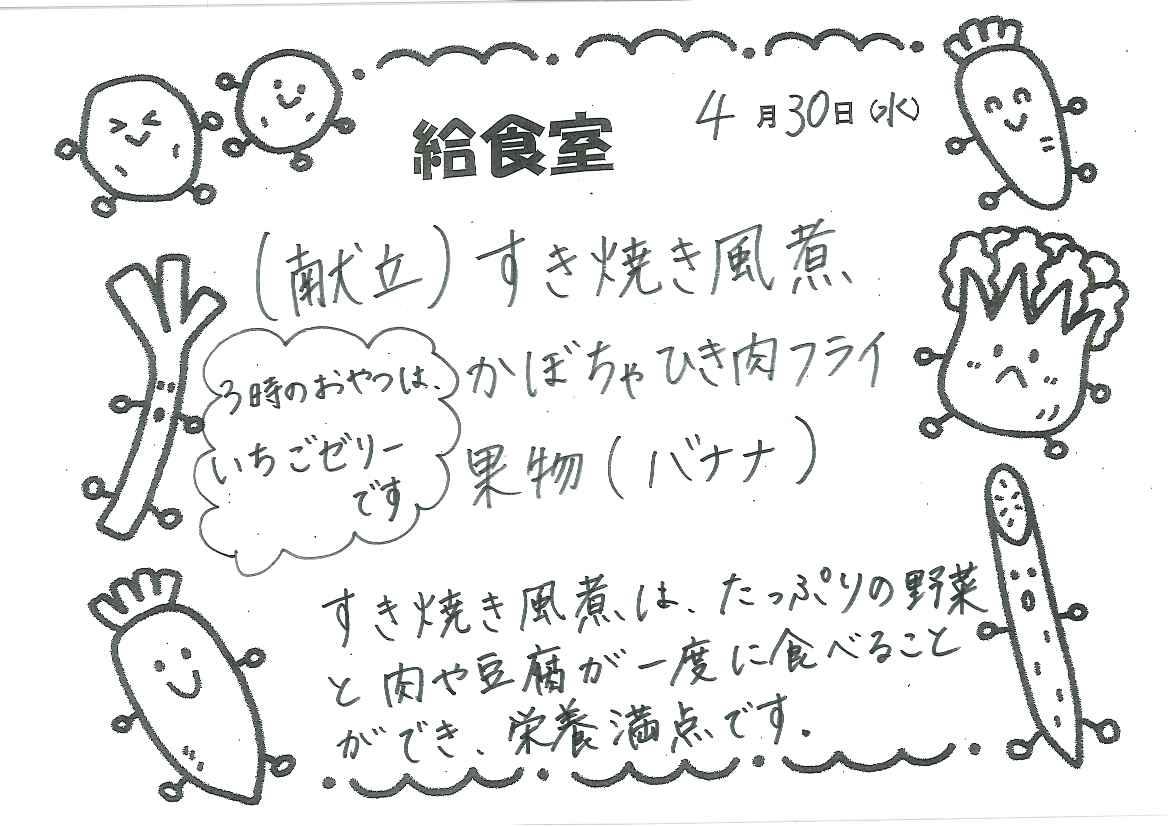 給食室
4月30日(水)
(献立)すき焼き風煮
かぼちゃひき肉フライ
果物(バナナ)
3時のおやつは、
いちごゼリー
です
すき焼き風煮は、たっぷりの野菜
と肉や豆腐が一度に食べること
ができ、栄養満点です。